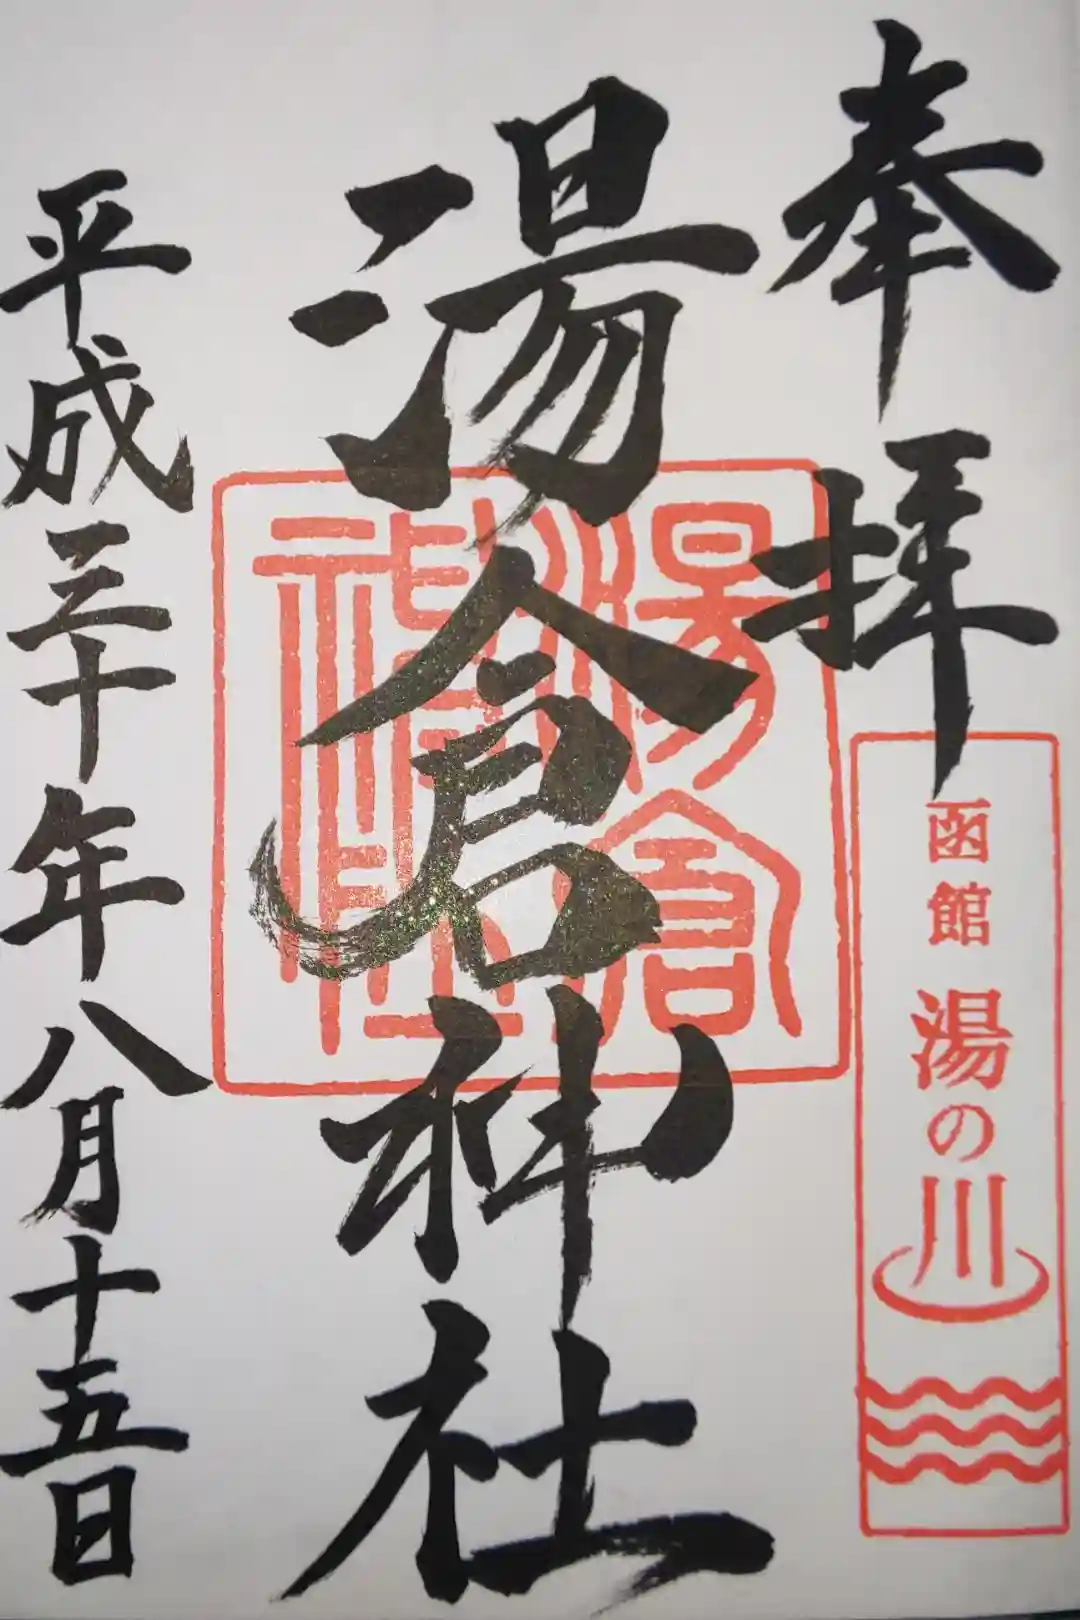 奉拝
函館 湯の川
湯倉神社
湯倉神社
平成三十年八月十五日